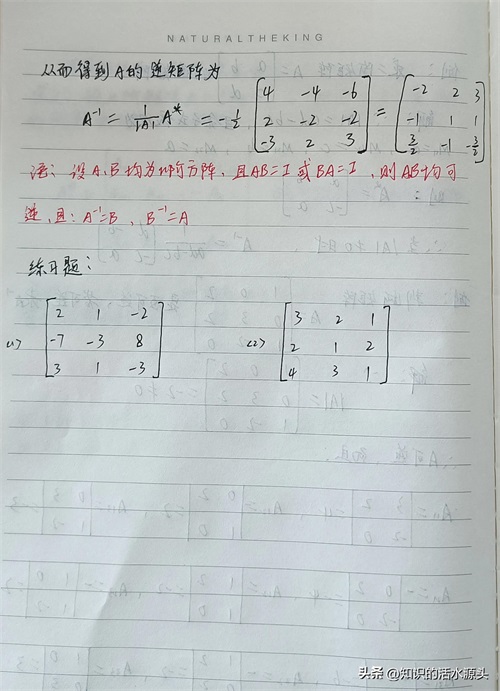 NATURALTHEKING
从而得到A的逆矩阵为
A⁻¹ = 1/|A| A* = -1/2 [4 -4 -6; 2 -2 -2; -3 2 3] = [-2 2 3; -1 1 1; 3/2 -1 -3/2]
注: 设A、B均为n阶方阵, 且AB=I 或BA=I, 则AB均可
逆, 且: A⁻¹=B, B⁻¹=A
练习题:
(1) [2 1 -2; -7 -3 8; 3 1 -3] (2) [3 2 1; 2 1 2; 4 3 1]
头条 @知识的活水源头